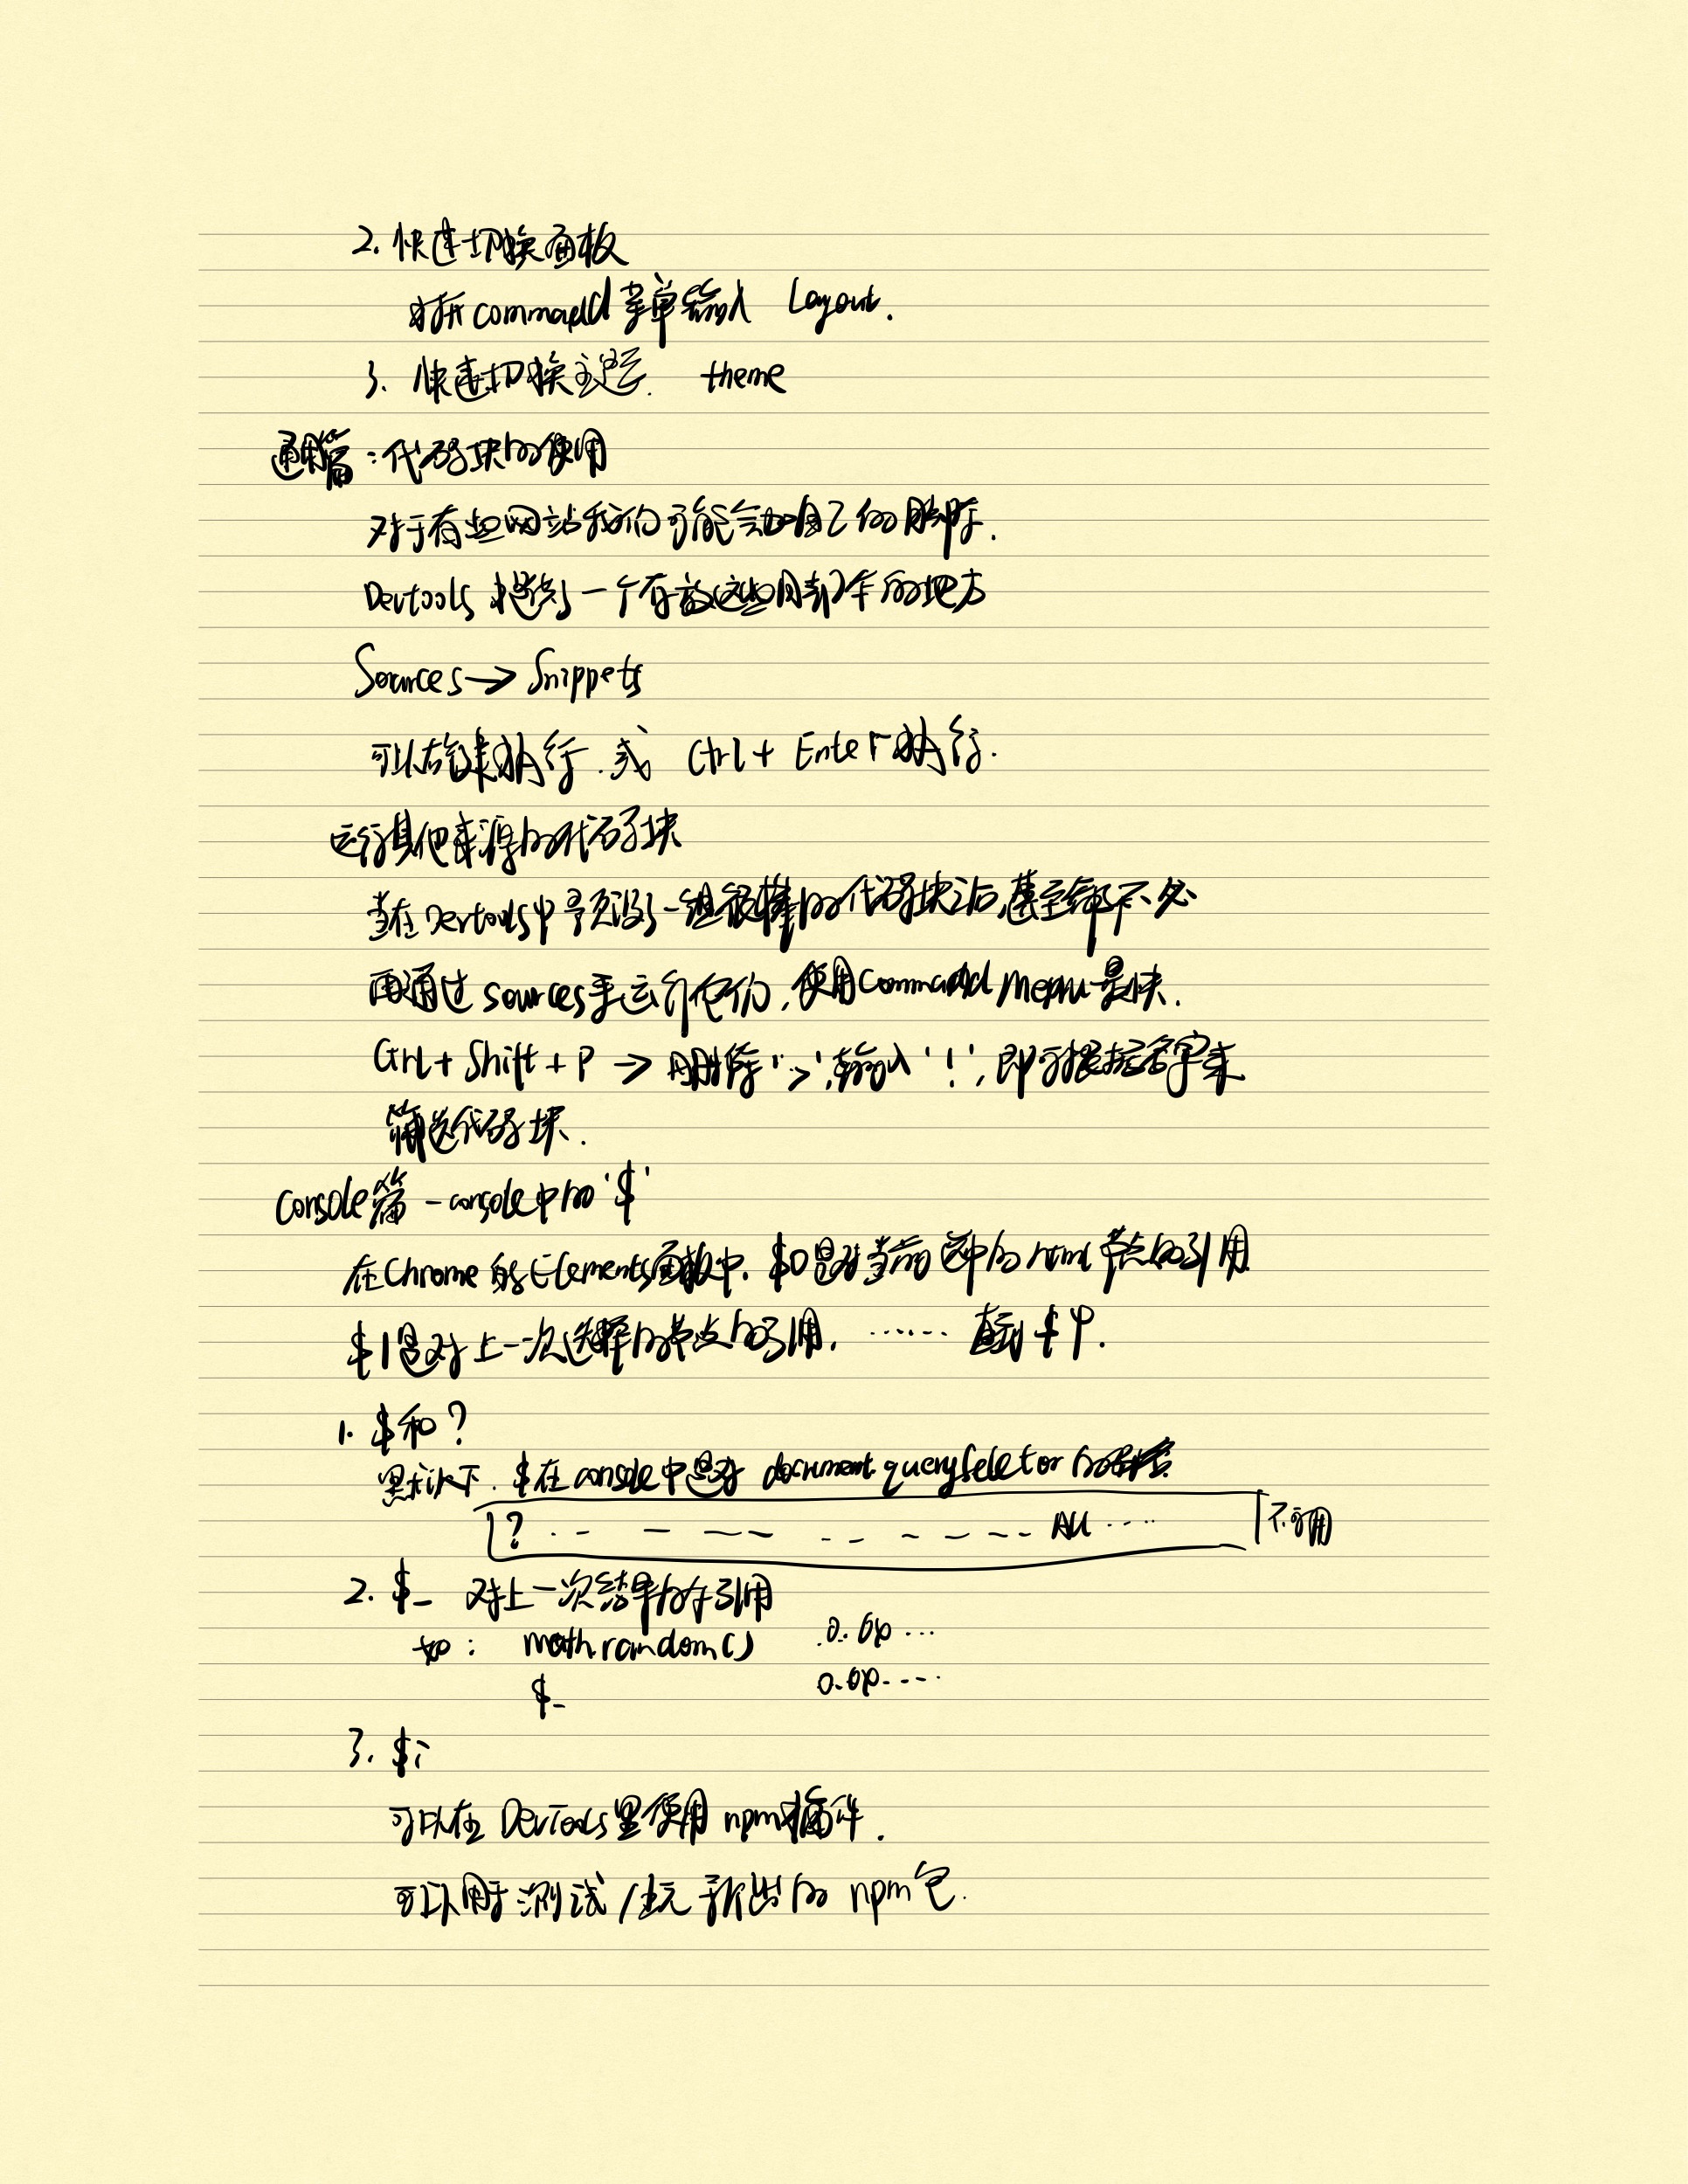 2. 快速切换面板
打开command菜单输入 Layout.
3. 快速切换主题. theme
通用篇:代码块的使用
对于有些网站我们可能会加自己的脚本.
Devtools 提供了一个存放这些脚本的地方
Sources→Snippets
可以右键执行.或 Ctrl+Enter执行.
运行其他来源的代码块
当在Devtools中预设了一组很棒的代码块之后,甚至都不必
再通过sources来运行他们,使用Command Menu最快.
Ctrl+Shift+P → 删除'>',输入'!',即可根据名字来
筛选代码块.
Console篇-console中的'$'
在Chrome的Elements面板中.$0是对当前选中的html节点的引用
$1是对上一次选择的节点的引用,……直到$4.
1. $和?
默认下.$在console中是对 document.querySeletor的
? All 不可用
2. $_ 对上一次结果的引用
如: math.random() 0.0p…
$_ 0.0p….
3. $i
可以在DevTools里使用npm插件.
可以用于测试/玩新出的npm包.